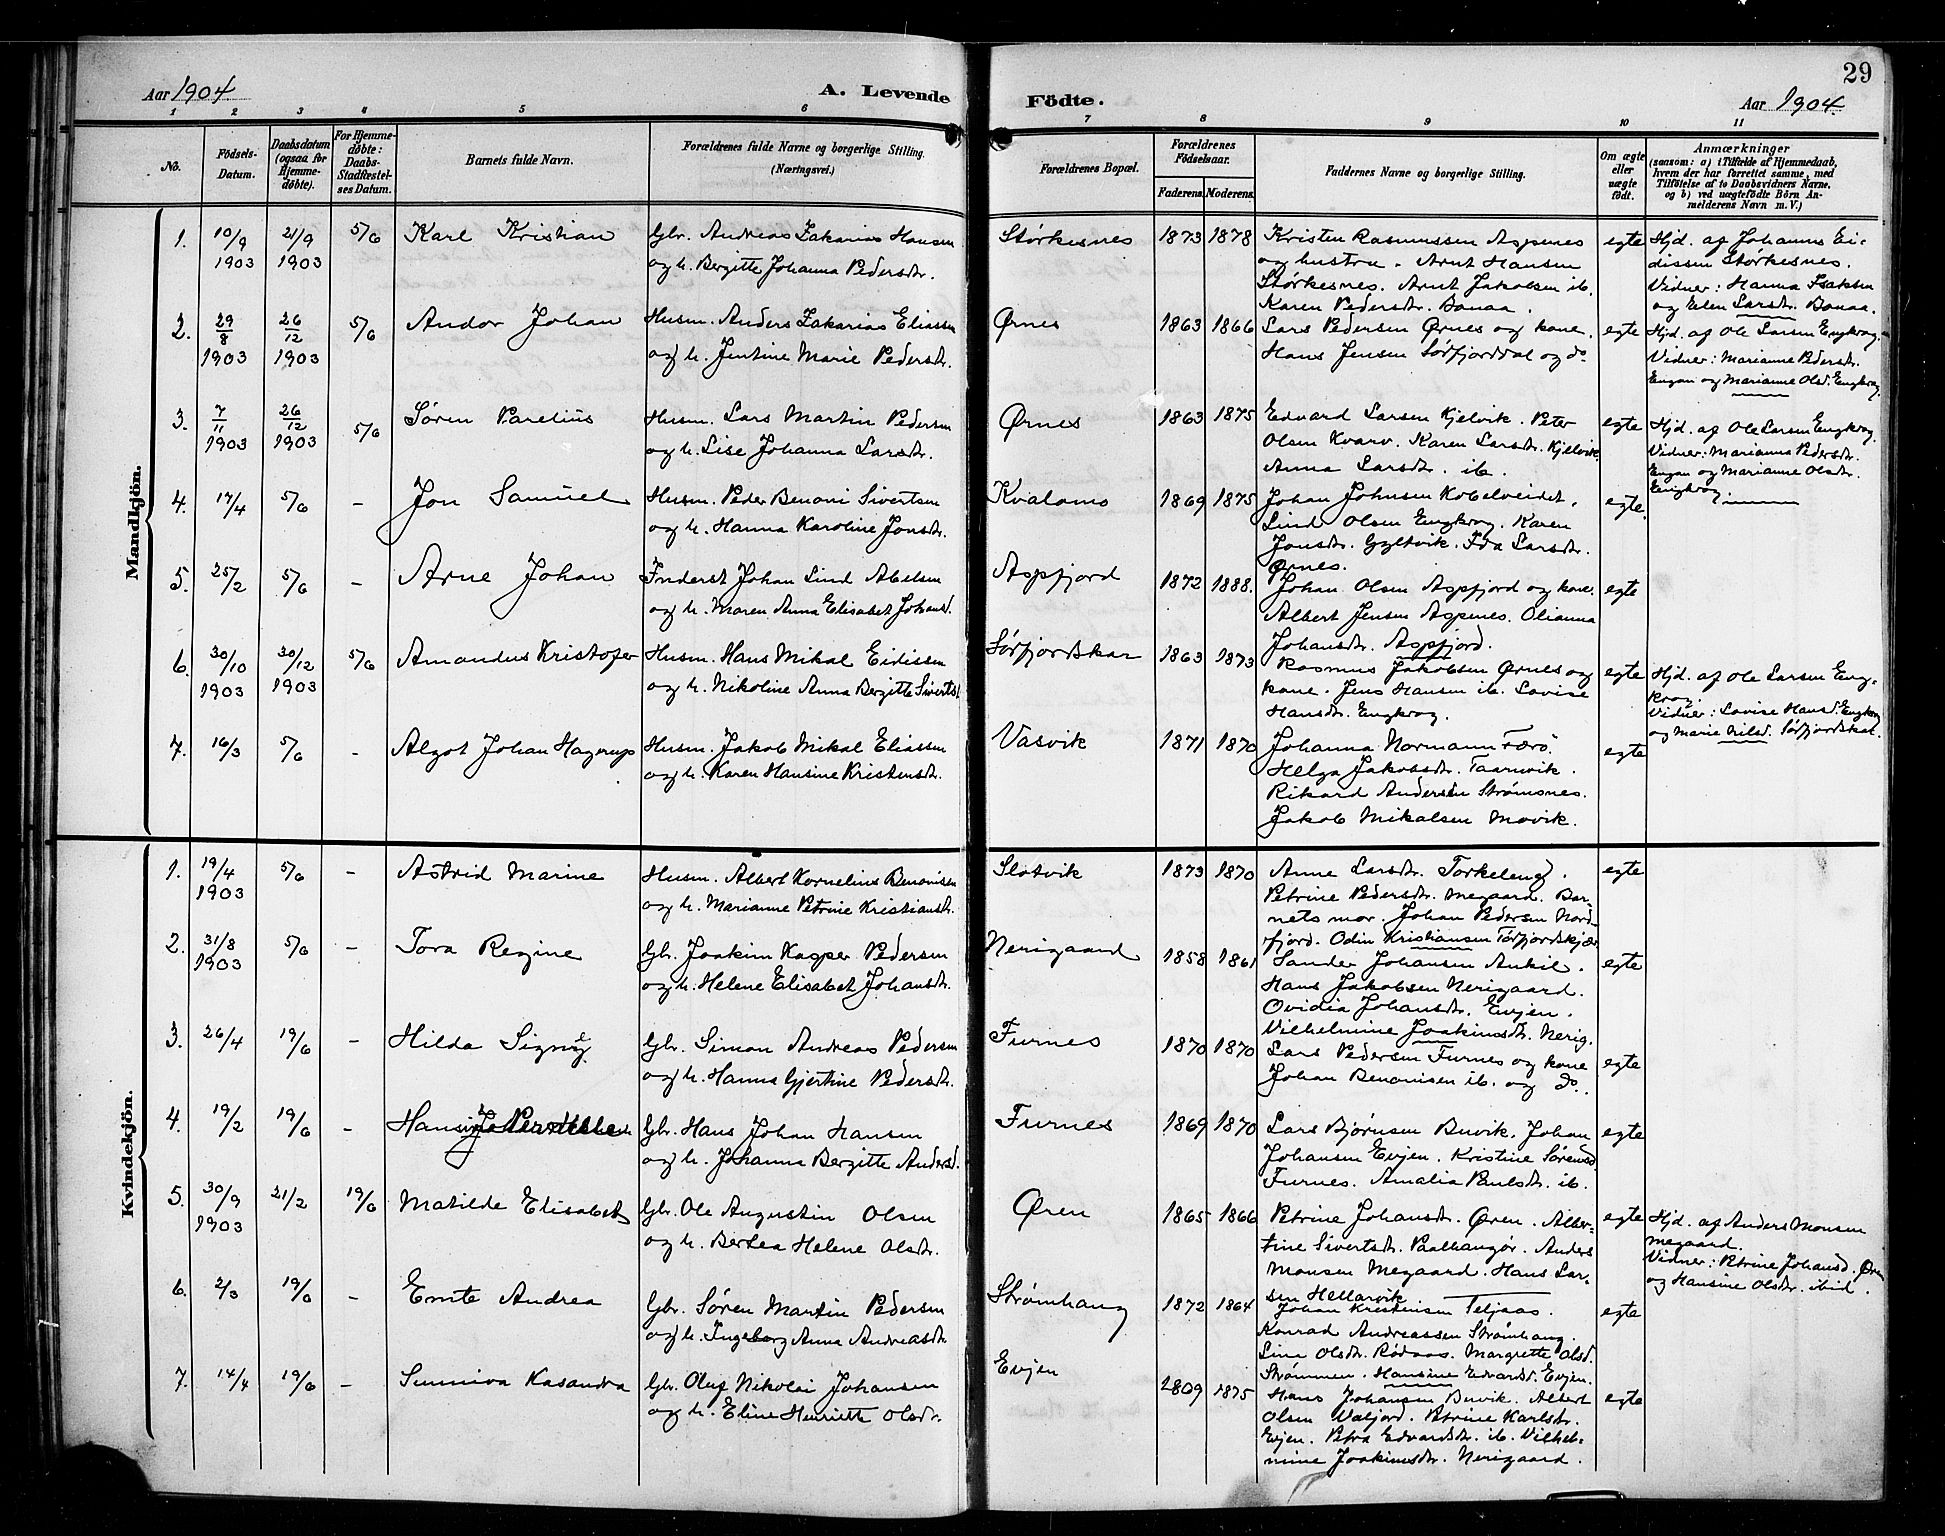 29
Aar 1904
A. Levende
Fødte.
Aar 1904
1 2 3 4 5 6 7 8 9 10 11
No.
Fødsels-
Datum.
Daabsdatum
(ogsaa for
Hjemme-
døbte).
For Hjemme-
døbte:
Daabs-
Stadfæstel-
ses Datum.
Barnets fulde Navn.
Forældrenes fulde Navne og borgerlige Stilling.
(Næringsvei.)
Forældrenes Bopæl.
Forældrenes
Fødselsaar.
Faderens. Moderens.
Faddernes Navne og borgerlige Stilling.
Om ægte
eller
uægte
født.
Anmærkninger
(saasom: a) i Tilfælde af Hjemmedaab,
hvem der har forrettet samme, med
Tilføielse af to Daabsvidners Navne,
og b) ved uægtefødte Børn An-
melderens Navn m. V.)
Mandkjön.
1. 10/9 1903 21/9 1903 5/6 Karl Kristian
Gbr. Andreas Zakarias Hansen
og h. Bergitte Johanna Pedersdtr.
Størkesnes 1873 1878
Kristen Rasmussen Aspenes
og hustru. Arnt Hansen
Størkesnes. Arnt Jakobsen ib.
Karen Pedersdtr. Bonaa.
egte
Hjd. af Johannes Ei-
dissen Størkesnes.
Vidner: Hanna Isaksen
og Elen Larsdtr. Bonaa.
2. 29/8 1903 26/12 1903 5/6 Andor Johan
Husm. Anders Zakarias Eliassen
og h. Jentine Marie Pedersdtr.
Ørnes 1863 1866
Lars Pedersen Ørnes og kone.
Hans Jensen Sørfjorddal og do
egte
Hjd. af Ole Larsen Engkrog.
Vidner: Marianne Pedersdtr.
Engan og Marianne Olsd. Engkrog
3. 7/11 1903 26/12 1903 5/6 Søren Parelius
Husm. Lars Martin Pedersen
og h. Lise Johanna Larsdtr.
Ørnes 1863 1875
Edvard Larsen Kjelvik. Peter
Olsen Kvarv. Karen Larsdtr. Kjelvik
Anna Larsdtr. ib.
egte
Hjd. af Ole Larsen Engkrog.
Vidner: Marianna Pedersdtr.
Engan og Marianne Olsdtr.
Engkrog.
4. 17/4 5/6 - Jon Samuel
Husm. Peder Benoni Sivertsen
og h. Hanna Karoline Jonsdtr.
Kvalnes 1869 1875
Johan Johnsen Kobelveidet.
Lind Olsen Engkrog. Karen
Jonsdtr. Gyltvik. Ida Larsdtr.
Ørnes.
egte.
5. 25/2 5/6 - Arne Johan
Inderst Johan Lind Abelsen
og h. Maren Anna Elisabet Johansd.
Aspfjord 1872 1888.
Johan Olsen Aspfjord og kone.
Albert Jensen Aspenes. Olianna
Johansdtr. Aspfjord.
egte
6. 30/10 1903 30/12 1903 5/6 Amandus Kristofer
Husm. Hans Mikal Eidissen
og h. Nikoline Anna Bergitte Sivertsd.
Sørfjordskar 1863 1873
Rasmus Jakobsen Ørnes og
kone. Jens Hansen ib. Lovise
Hansdtr. Engkrog.
egte
Hjd. af Ole Larsen Eng-
krog.
Vidner: Lovise Hansd. Engkrog
og Marie Nilsd. Sørfjordskal.
7. 16/3 5/6 - Algot Johan Hagerup
Husm. Jakob Mikal Eliassen
og h. Karen Hansine Kristensdtr.
Vasvik 1871 1870
Johanna Normann Færö.
Helga Jakobsdtr. Taarnvik.
Rikard Andersen Strømsnes.
Jakob Mikalsen Movik.
egte
Kvindekjön.
1. 19/4 1903 5/6 - Astrid Marine
Husm. Albert Kornelius Benonisen
og h. Marianne Petrine Kristiansdtr.
Slotvik 1873 1870
Anne Larsdtr. Torkeleng.
Petrine Pedersdtr. Megaard. Bar-
nets mor. Johan Pedersen Nord-
fjord. Odin Kristiansen Tørfjordskjær
egte
2. 31/8 1903 5/6 - Tora Regine
Gbr. Joakim Kasper Pedersen
og h. Helene Elisabet Johansdtr.
Nerigaard 1858 1861
Sander Johansen Ankil.
Hans Jakobsen Nerigaard.
Ovidia Johansdtr. Evjen.
Vilhelmine Joakimsdtr. Nerig.
egte
3. 26/4 19/6 - Hilda Signy
Gbr. Simon Andreas Pedersen
og h. Hanna Gjertine Pedersdtr.
Furnes 1870 1870
Lars Pedersen Furnes og kone
Johan Benonisen ib. og do.
egte
4. 19/2 19/6 - Hansine
Gbr. Hans Johan Hansen
og h. Johanna Bergitte Andersd.
Furnes 1869 1870
Lars Bjørnsen Buvik. Johan
Johansen Evjen. Kristine Sørensd.
Furnes. Amalia Paulsdtr. ib.
egte
5. 30/9 1903 21/2 19/6 Matilde Elisabet
Gbr. Ole Augustin Olsen
og h. Bertea Helene Olsdtr.
Øren 1865 1866
Petrine Johansdtr. Øren. Alber-
tine Sivertsdtr. Paalhangør. Anders
Monsen Megaard. Hans Lar-
sen Hellarvik
egte
Hjd. af Anders Monsen
Megaard.
Vidner: Petrine Johansd. Øren
og Hansine Olsdtr. ibid.
6. 2/3 19/6 - Emte Andrea
Gbr. Søren Martin Pedersen
og h. Ingeborg Anna Andreasdtr.
Strømhaug 1872 1864
Johan Kristensen Teljaas.
Konrad Andreassen Strømhaug.
Lina Olsdtr. Rødaas. Margrette Olsd.
Strømmen. Hansine Edvardsd. Evjen.
egte
7. 14/4 19/6 - Sunniva Kasandra
Gbr. Oluf Nikolai Johansen
og h. Eline Henriette Olsdtr.
Evjen 2809 1875
Hans Johansen Buvik. Albert
Olsen Valjord. Petrine Karlsdtr.
Evjen. Petra Edvardsdtr. ib. Vilhel-
mine Joakimsdtr. Nerigaard.
egte